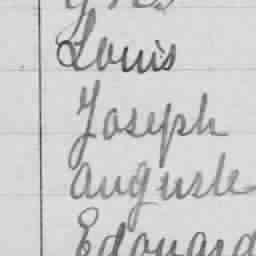 Yves
Louis
Joseph
Auguste
Edouard